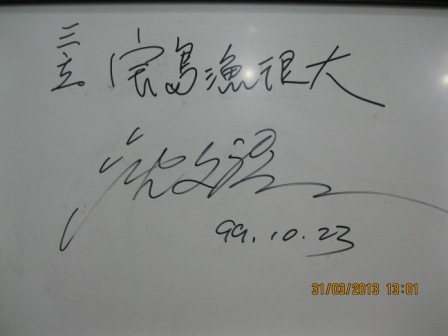 三立 宝島漁很大
99.10.23
31/03/2013 13:01